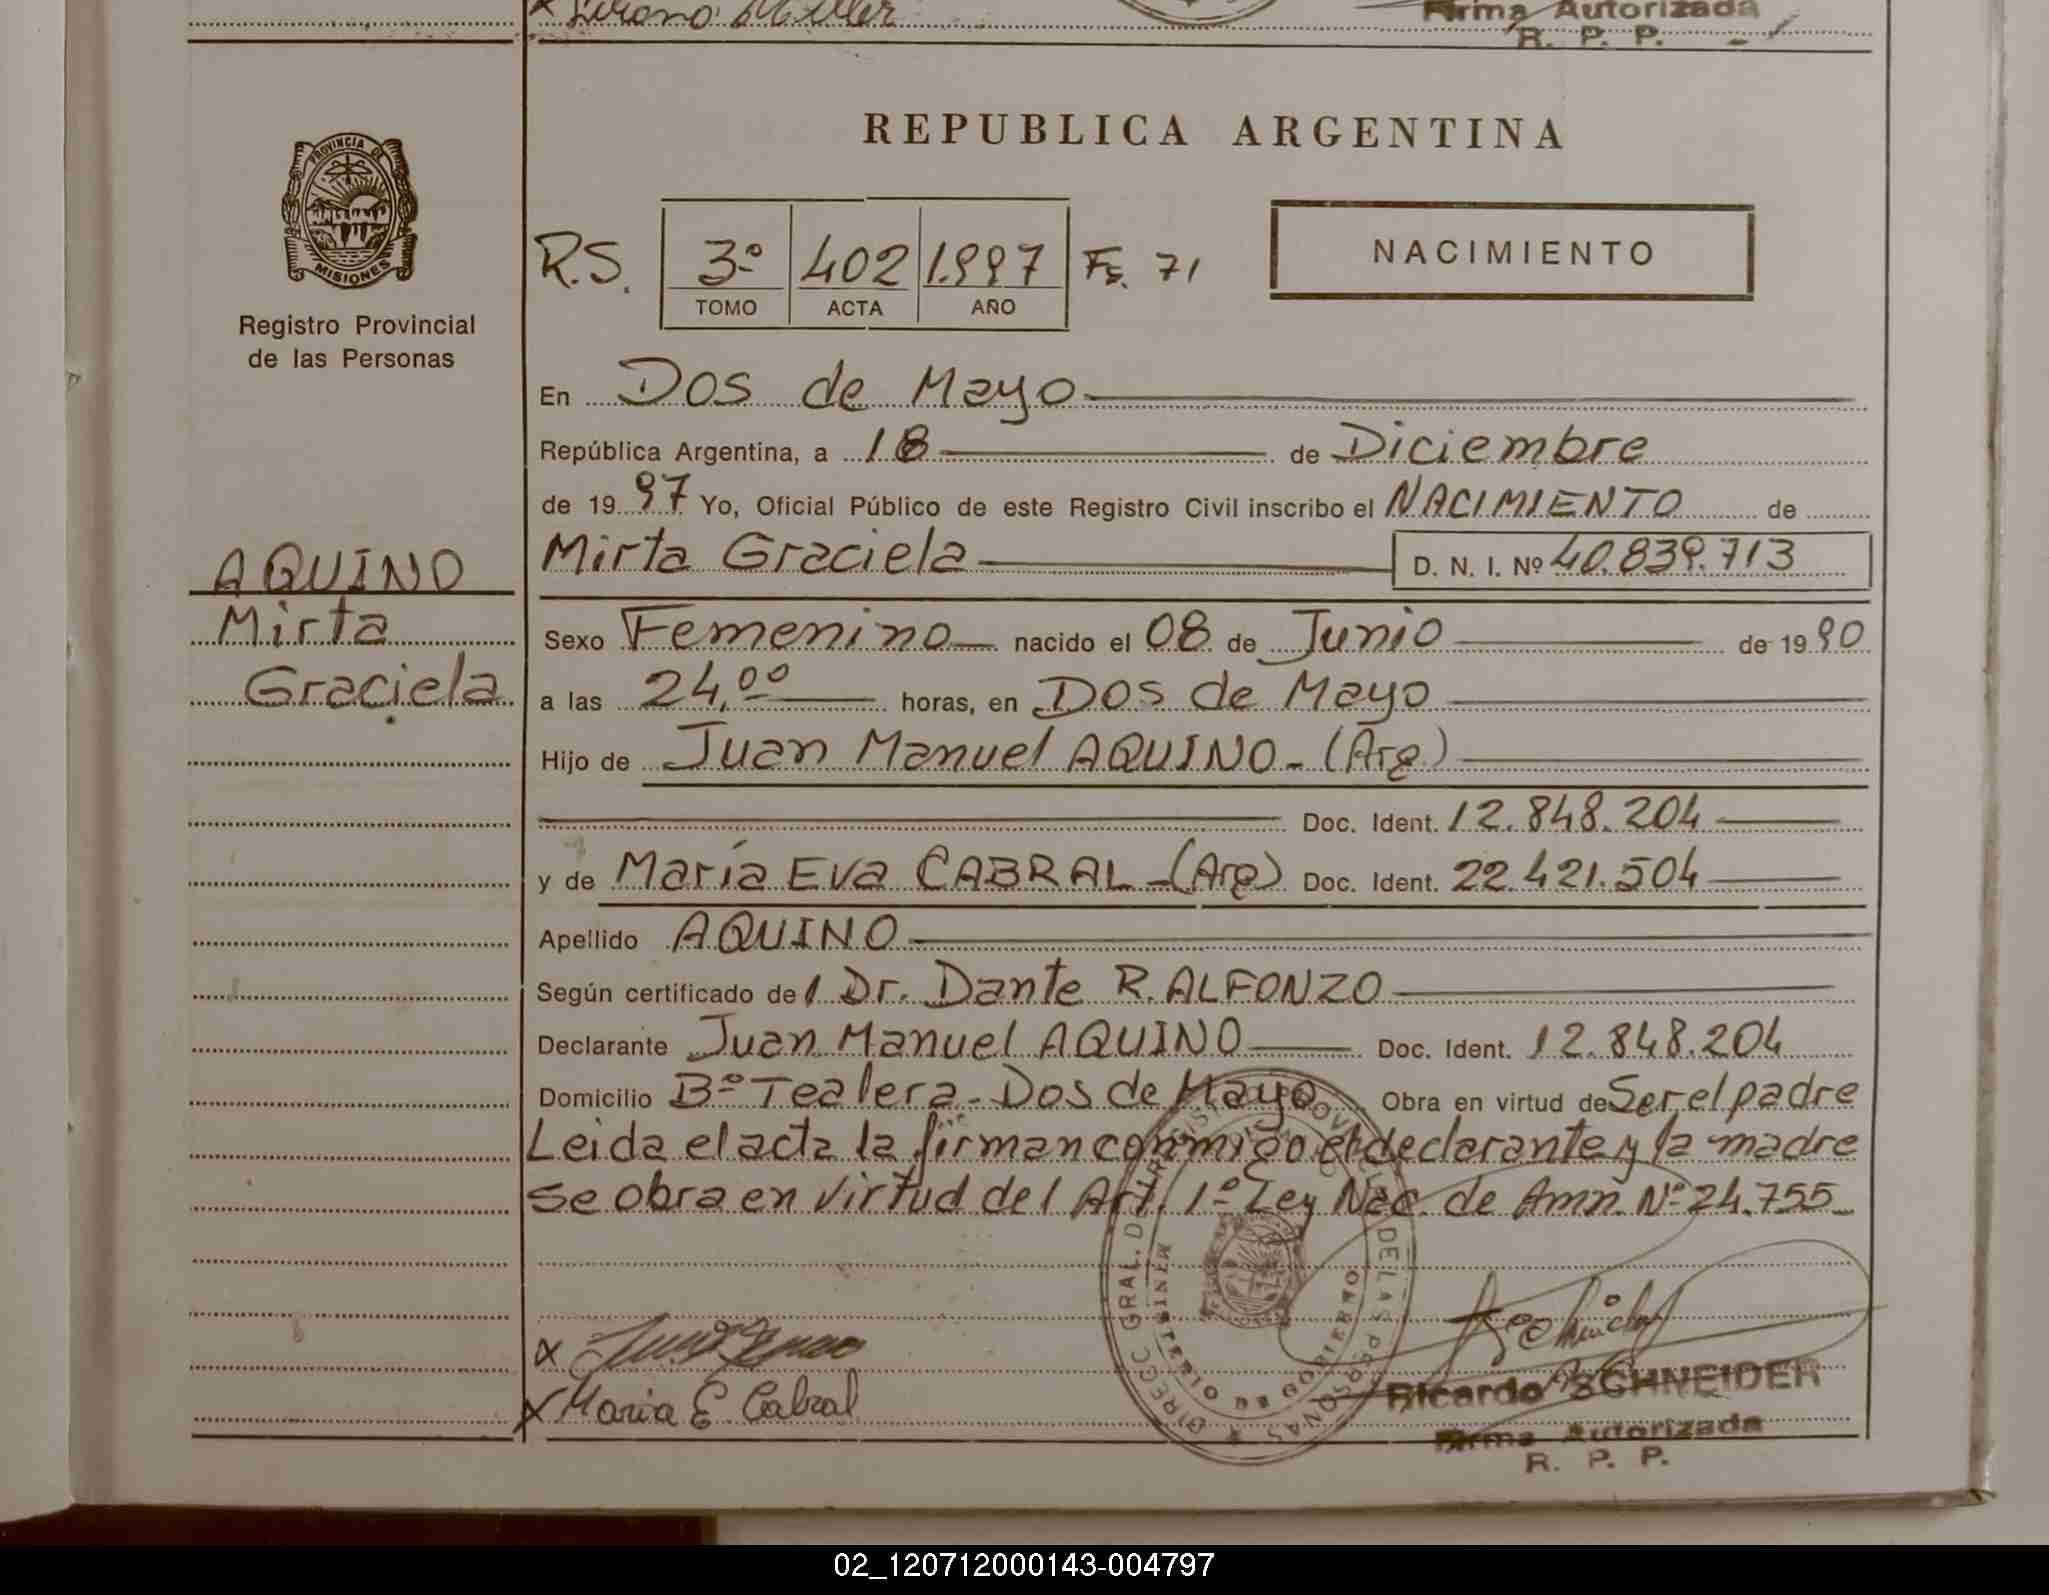 Firma Autorizada
R. P. P.
REPUBLICA ARGENTINA
PROVINCIA DE
MISIONES
Registro Provincial
de las Personas
R.S. 3º 402 1.997 Fs. 71
TOMO ACTA AÑO
NACIMIENTO
En Dos de Mayo
República Argentina, a 18 de Diciembre
de 19 97 Yo, Oficial Público de este Registro Civil inscribo el NACIMIENTO de
Mirta Graciela D. N. I. Nº 40.839.713
AQUINO
Mirta
Graciela
Sexo Femenino nacido el 08 de Junio de 19 90
a las 24,00 horas, en Dos de Mayo
Hijo de Juan Manuel AQUINO - (Arg)
Doc. Ident. 12.848.204
y de María Eva CABRAL - (Arg) Doc. Ident. 22.421.504
Apellido AQUINO
Según certificado del Dr. Dante R. ALFONZO
Declarante Juan Manuel AQUINO Doc. Ident. 12.848.204
Domicilio Bº Tealera - Dos de Mayo Obra en virtud de Ser el padre
Leida el acta la firman conmigo el declarante y la madre
se obra en virtud del Art. 1º Ley Nac. de Amn. Nº 24.755
DIRECC GRAL. DEL REGISTRO PROVINCIAL DE LAS PERSONAS
MINISTERIO DE GOBIERNO
Maria E Cabral
Ricardo A. SCHNEIDER
Firma Autorizada
R. P. P.
02_120712000143-004797